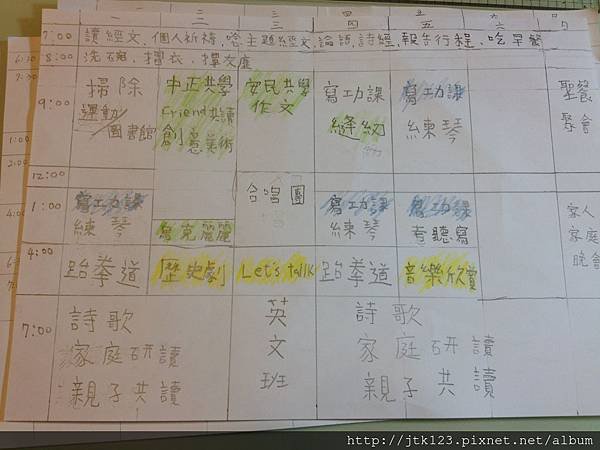 一 二 三 四 五 六 日
7:00 讀經文、個人祈禱、唸主題經文、論語、詩經、報告行程、吃早餐
8:00 洗碗、摺衣、撢灰塵
9:00
掃除
運動/圖書館
中正共學
Friend共讀
創意美術
安民共學
作文
寫功課
縫紉
寫功課
練琴
聖餐
聚會
12:00
1:00
寫功課
練琴
烏克麗麗
合唱團
寫功課
練琴
寫功課
考聽寫
家人
家庭
晚會
4:00
跆拳道
歷史劇
Let's tallk
跆拳道
音樂欣賞
7:00
詩歌
家庭研讀
親子共讀
英
文
班
詩歌
家庭研讀
親子共讀
6:30
7:30
1:00
2:00
4:00
http://jtk123.pixnet.net/album